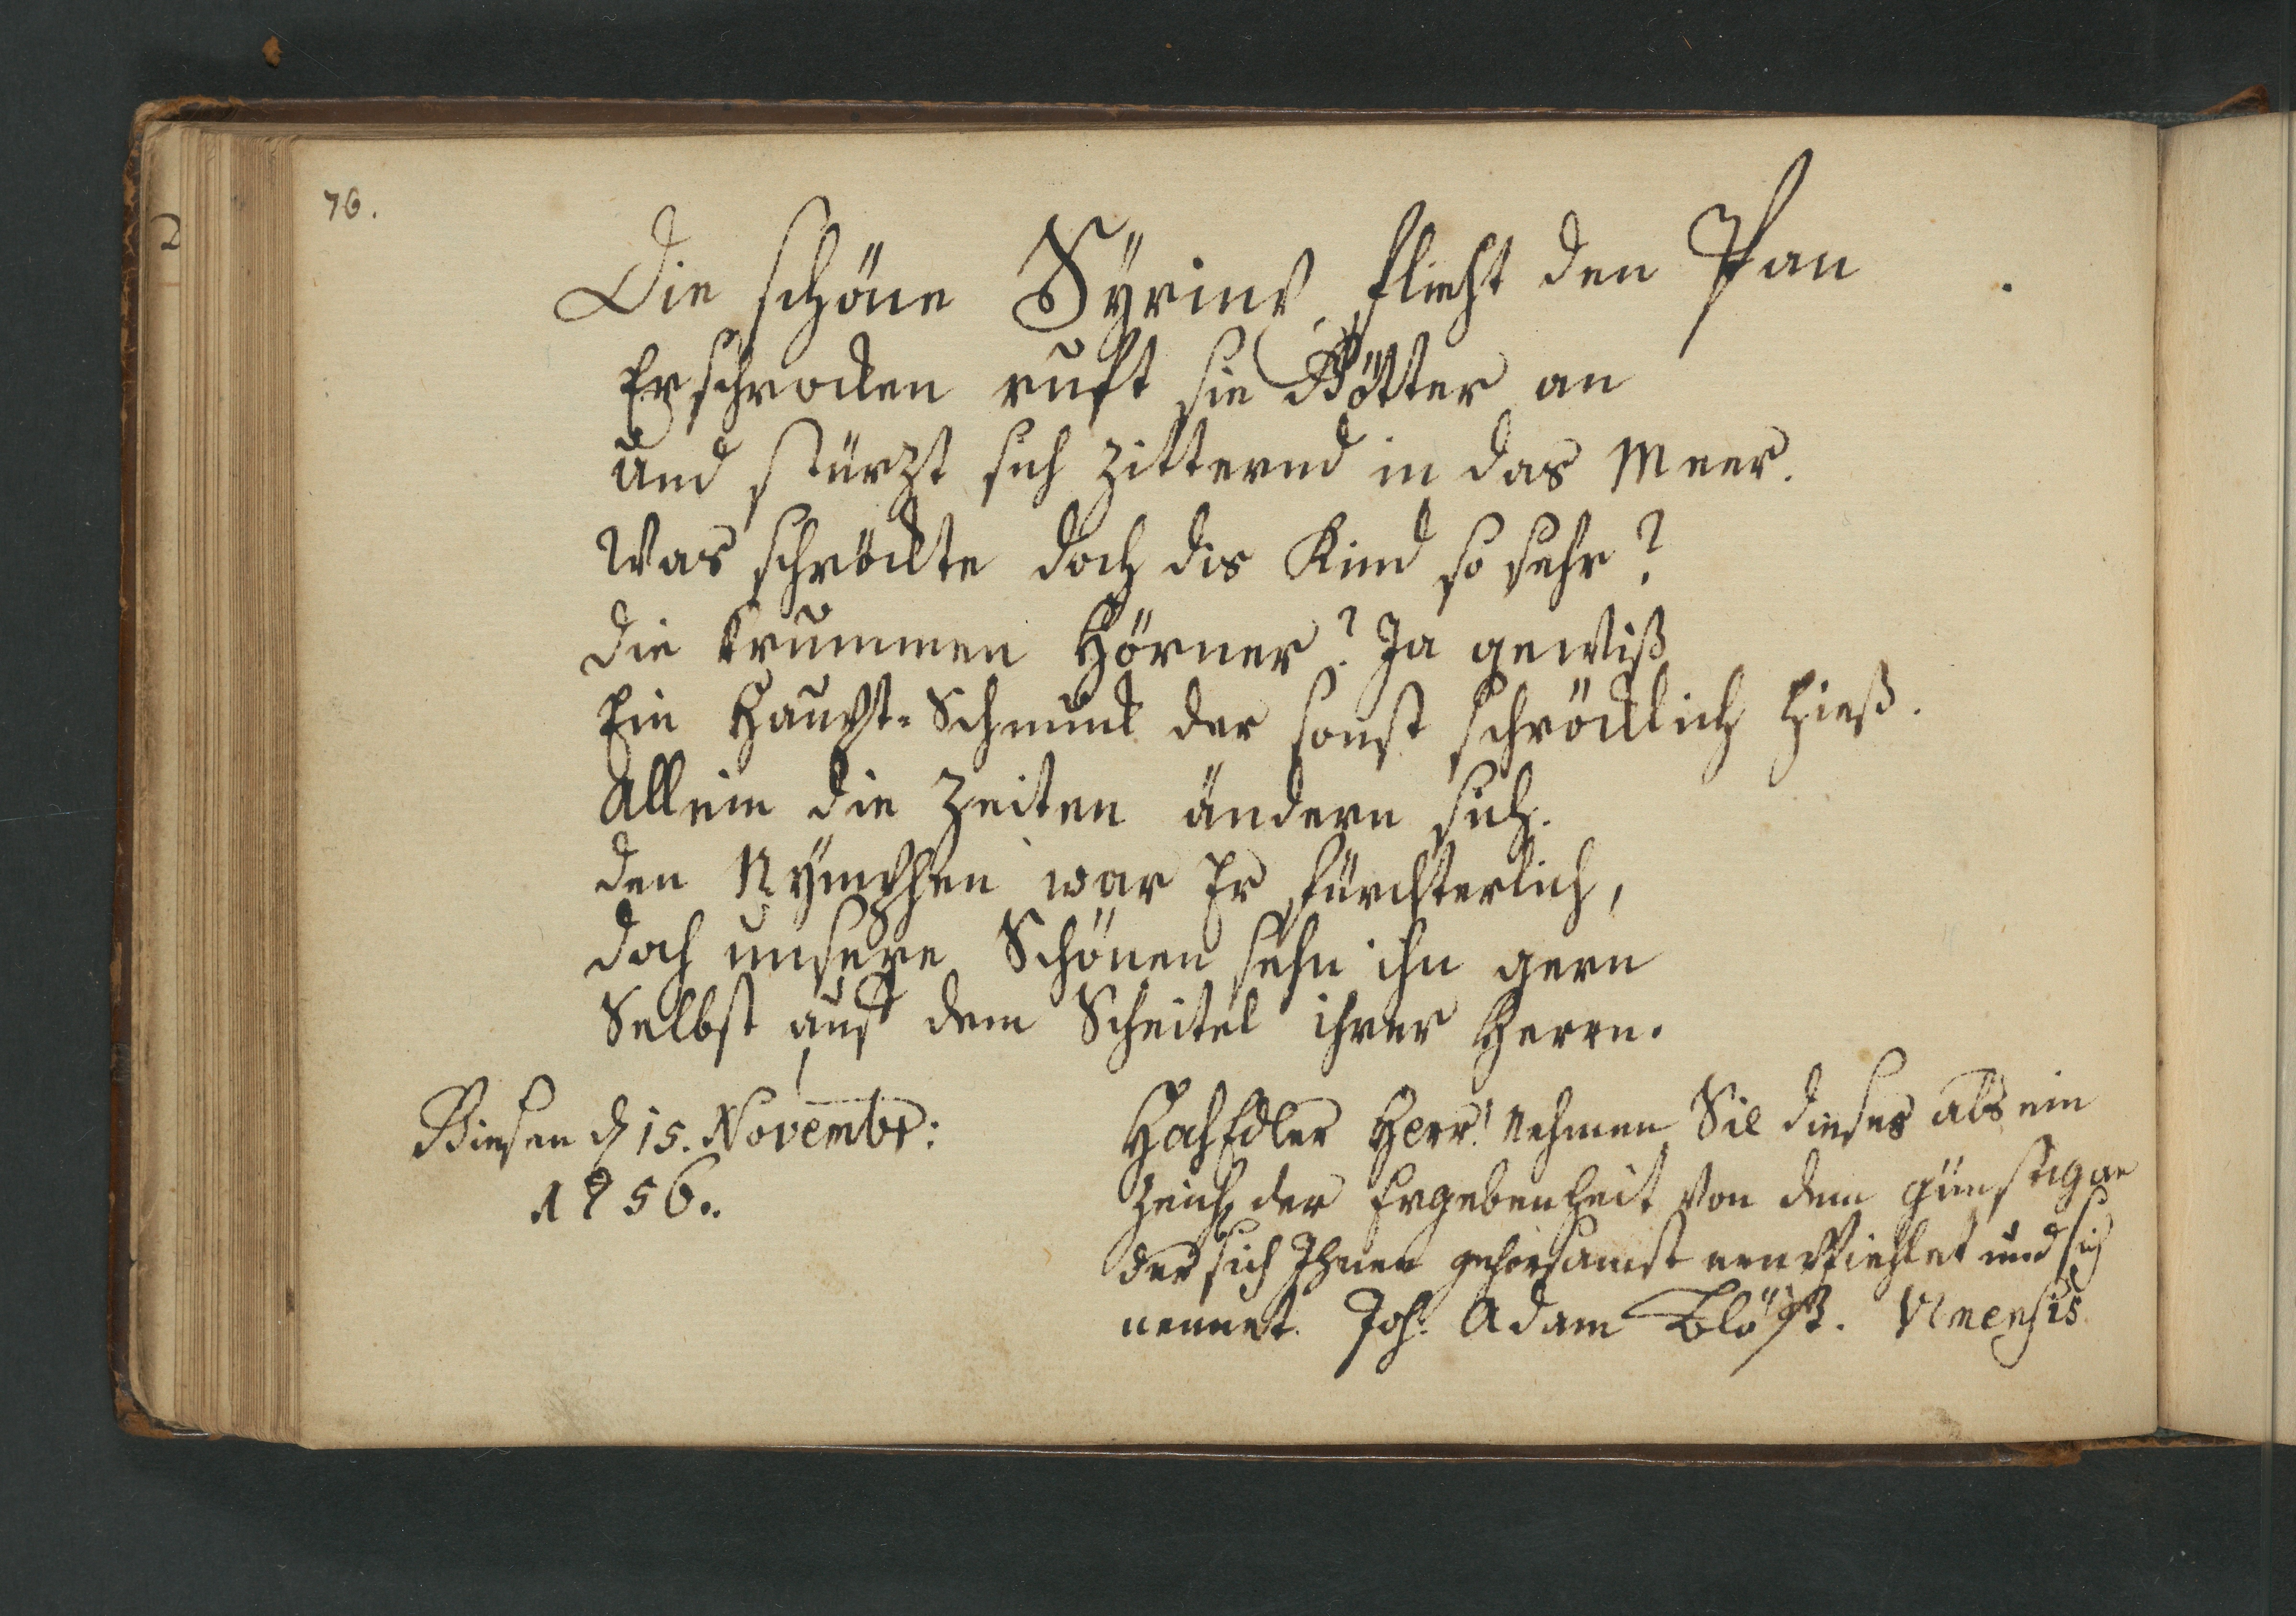 76.
Die schöne Syrinx flieht den Pan
Erschrocken ruft sie Götter an
und stürzt sich zitternd in das Meer.
Was schröckte doch dis Kind so sehr?
die krummen Hörner? Ja gewiß
Ein Haupt-Schmuck der sonst schröcklich hieß.
Allein die Zeiten ändern sich.
den Nÿmphen war Er fürchterlich,
doch unsere Schönen sehn ihn gern
Selbst auf dem Scheitel ihrer Herrn.
Giesen d 15. Novembr:
1756..
HochEdler Herr! nehmen Sie dieses als ein
Zeich der Ergebenheit von dem günstig an
der sich Ihnen gehorsamst empfiehlet und sich
nennet. Joh: Adam